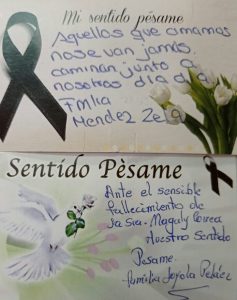 Mi sentido pésame
Aquellos que amamos
no se van jamás.
caminan junto a
nosotros dia a dia
Fmlia
Mendez Zela
Sentído Pèsame
Ante el sensible
fallecimiento de
la Sra. Maguly Correa
Nuestro Sentido
Pesame.
familia Loyola Peláez